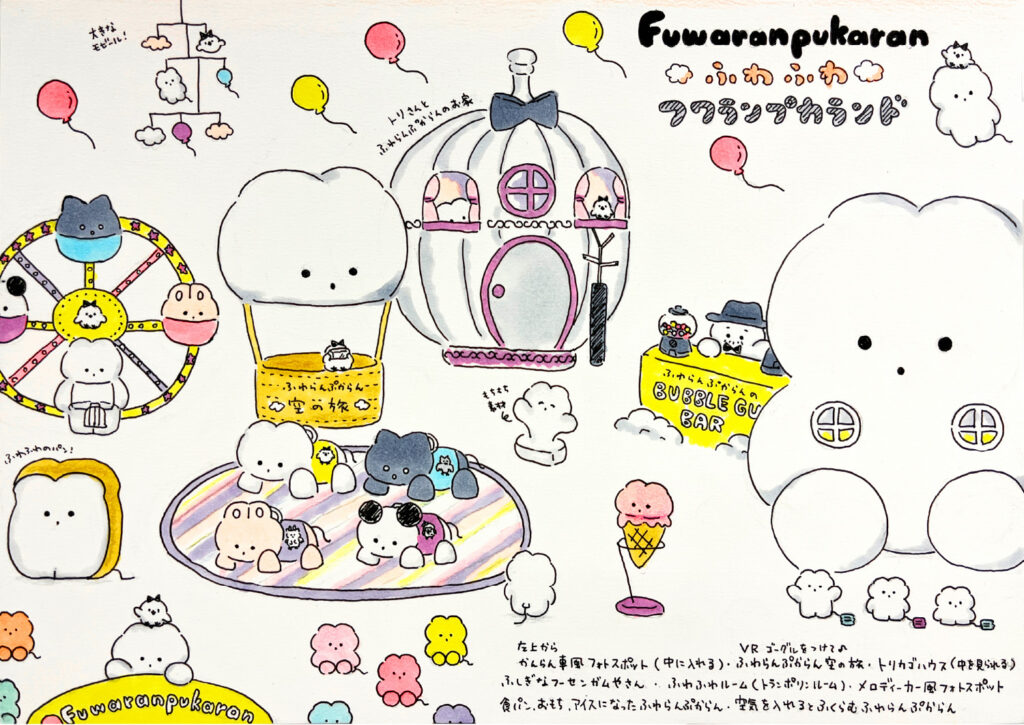 Fuwaranpukaran
ふわふわ
フワランプカランド
大きな
モビール!
トリさんと
ふわらんぷからんのお家
ふわらんぷからん
空の旅
もちもち
素材
ふわらんぷからんの
BUBBLE GU
BAR
ふわふわのパン!
Fuwaranpukaran
左上から
VRゴーグルをつけて♪
かんらん車風フォトスポット(中に入れる)・ふわらんぷからん空の旅・トリカゴハウス(中を見られる)
ふしぎなフーセンガムやさん・ふわふわルーム(トランポリンルーム)・メロディーカー風フォトスポット
食パン、おもち、アイスになったふわらんぷからん・空気を入れるとふくらむふわらんぷからん